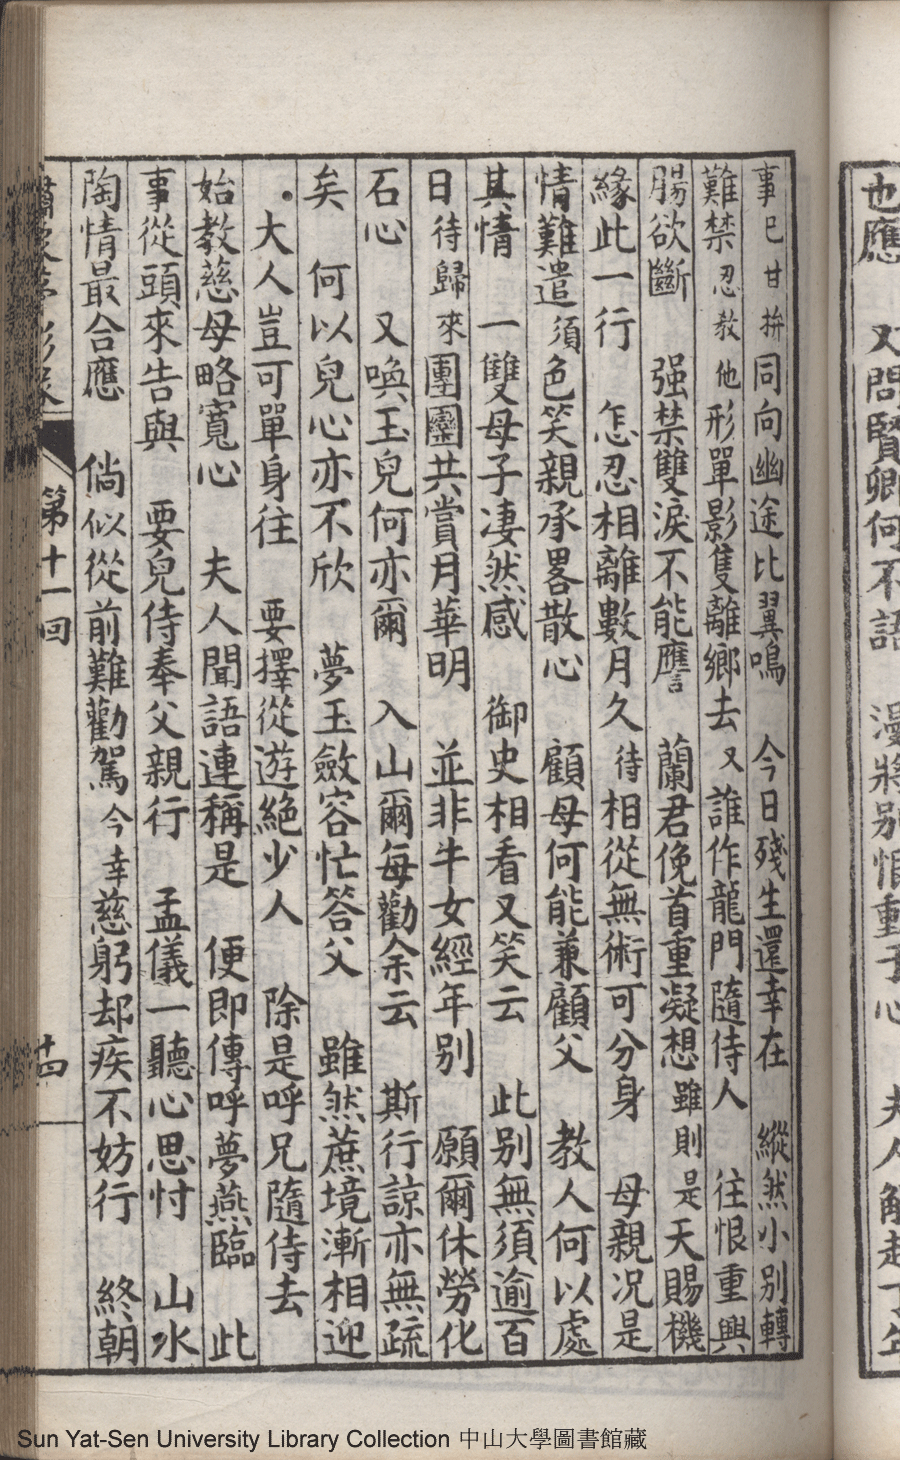 也應　又問賢卿何不語　漫將別恨重予心　夫人解起
事已甘拚同向幽途比翼鳴　今日殘生還幸在　縱然小別轉
難禁忍教他形單影隻離鄉去又誰作龍門隨侍人　往恨重興
腸欲斷　强禁雙淚不能譍　蘭君俛首重凝想雖則是天賜機
緣此一行　怎忍相離數月久待相從無術可分身　母親况是
情難遣須色笑親承畧散心　顧母何能兼顧父　教人何以處
其情　一雙母子凄然感　御史相看又笑云　此別無須逾百
日待歸來團圞共賞月華明　並非牛女經年別　願爾休勞化
石心　又喚玉兒何亦爾　入山爾每勸余云　斯行諒亦無疏
矣　何以兒心亦不欣　夢玉斂容忙答父　雖然蔗境漸相迎
大人豈可單身往　要擇從遊絕少人　除是呼兄隨侍去
始教慈母略寬心　夫人聞語連稱是　便即傳呼夢燕臨　此
事從頭來告與　要兒侍奉父親行　孟儀一聽心思忖　山水
陶情最合應　倘似從前難勸駕今幸慈躬却疾不妨行　終朝
第十一回　十四
Sun Yat-Sen University Library Collection 中山大學圖書館藏